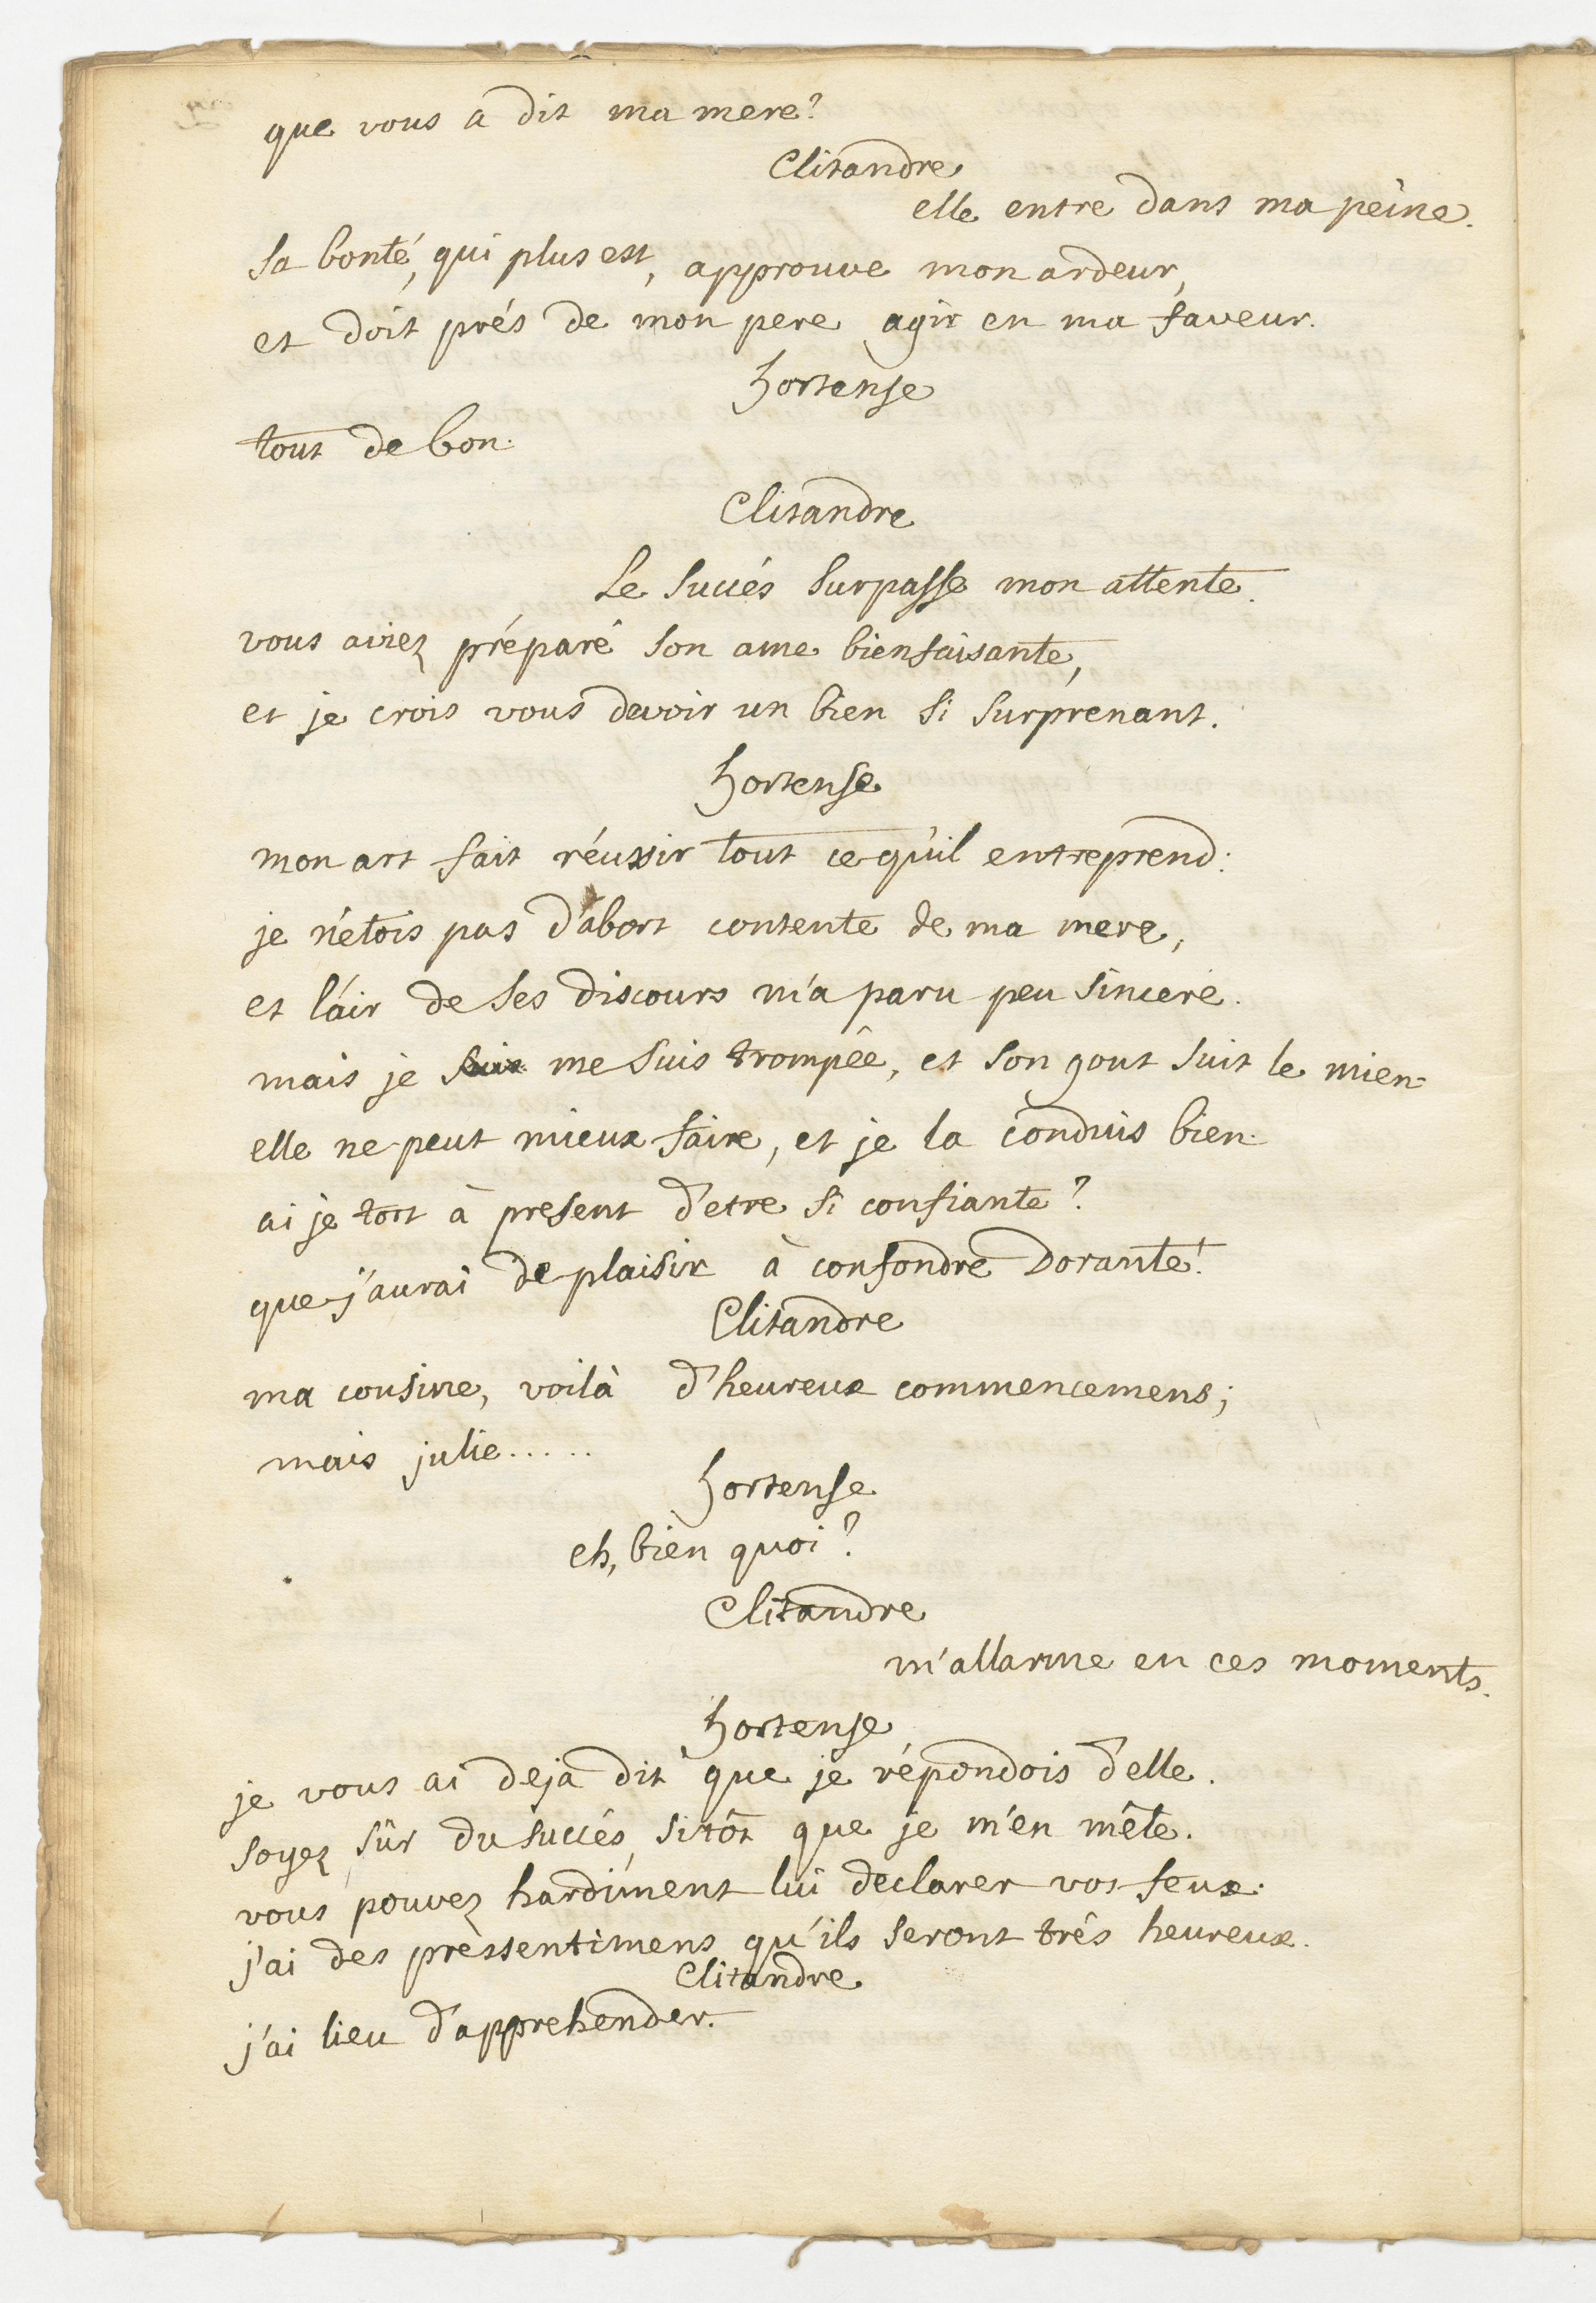 que vous a dit ma mere?
Clitandre
elle entre dans ma peine.
sa bonté, qui plus est, approuve mon ardeur,
et doit prés de mon pere agir en ma faveur.
hortense
tout de bon.
Clitandre
Le succés surpasse mon attente.
vous aviez préparé son ame bienfaisante,
et je crois vous devoir un bien si surprenant.
hortense
mon art fait réussir tout ce qu'il entreprend:
je n'etois pas d'abort contente de ma mere,
et l'air de ses discours m'a paru peu sincere.
mais je suis me suis trompée, et son gout suit le mien.
elle ne peut mieux faire, et je la conduis bien.
ai je tort à present d'etre si confiante?
que j'aurai de plaisir à confondre Dorante!
Clitandre
ma cousine, voilà d'heureux commencemens;
mais julie.....
hortense
eh, bien quoi?
Clitandre
m'allarme en ces moments.
hortense
je vous ai deja dit que je répondois d'elle.
soyez sûr du succés, sitôt que je m'en mêle.
vous pouvez hardiment lui declarer vos feux.
j'ai des pressentimens qu'ils seront trés heureux.
Clitandre
j'ai lieu d'apprehender.